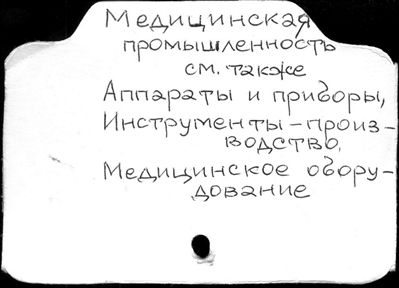 Медицинская
промышленность
см. также
Аппараты и приборы,
Инструменты - произ-
водство,
Медицинское обору-
дование